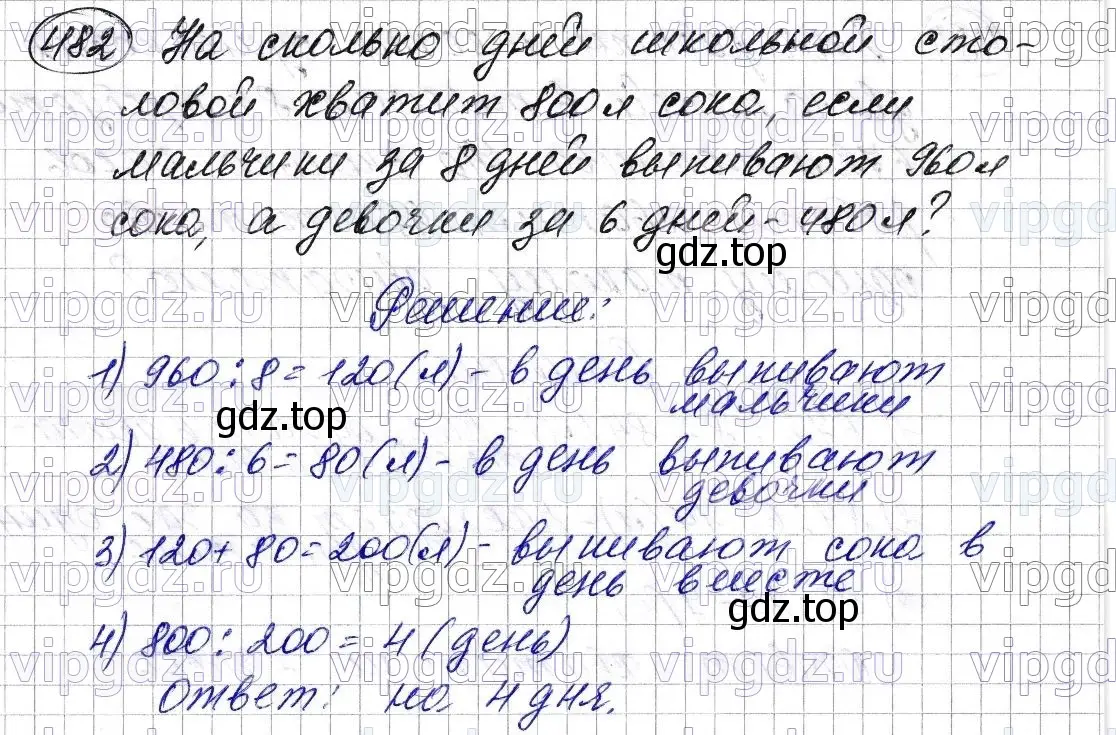 482 На сколько дней школьной сто-
ловой хватит 800 л сока, если
мальчики за 8 дней выпивают 960 л
сока, а девочки за 6 дней - 480 л?
gdz.top
Решение:
1) 960 : 8 = 120 (л) - в день выпивают
мальчики
gdz.top
2) 480 : 6 = 80 (л) - в день выпивают
девочки
3) 120 + 80 = 200 (л) - выпивают сока в
день вместе
gdz.top
4) 800 : 200 = 4 (день)
Ответ: на 4 дня.